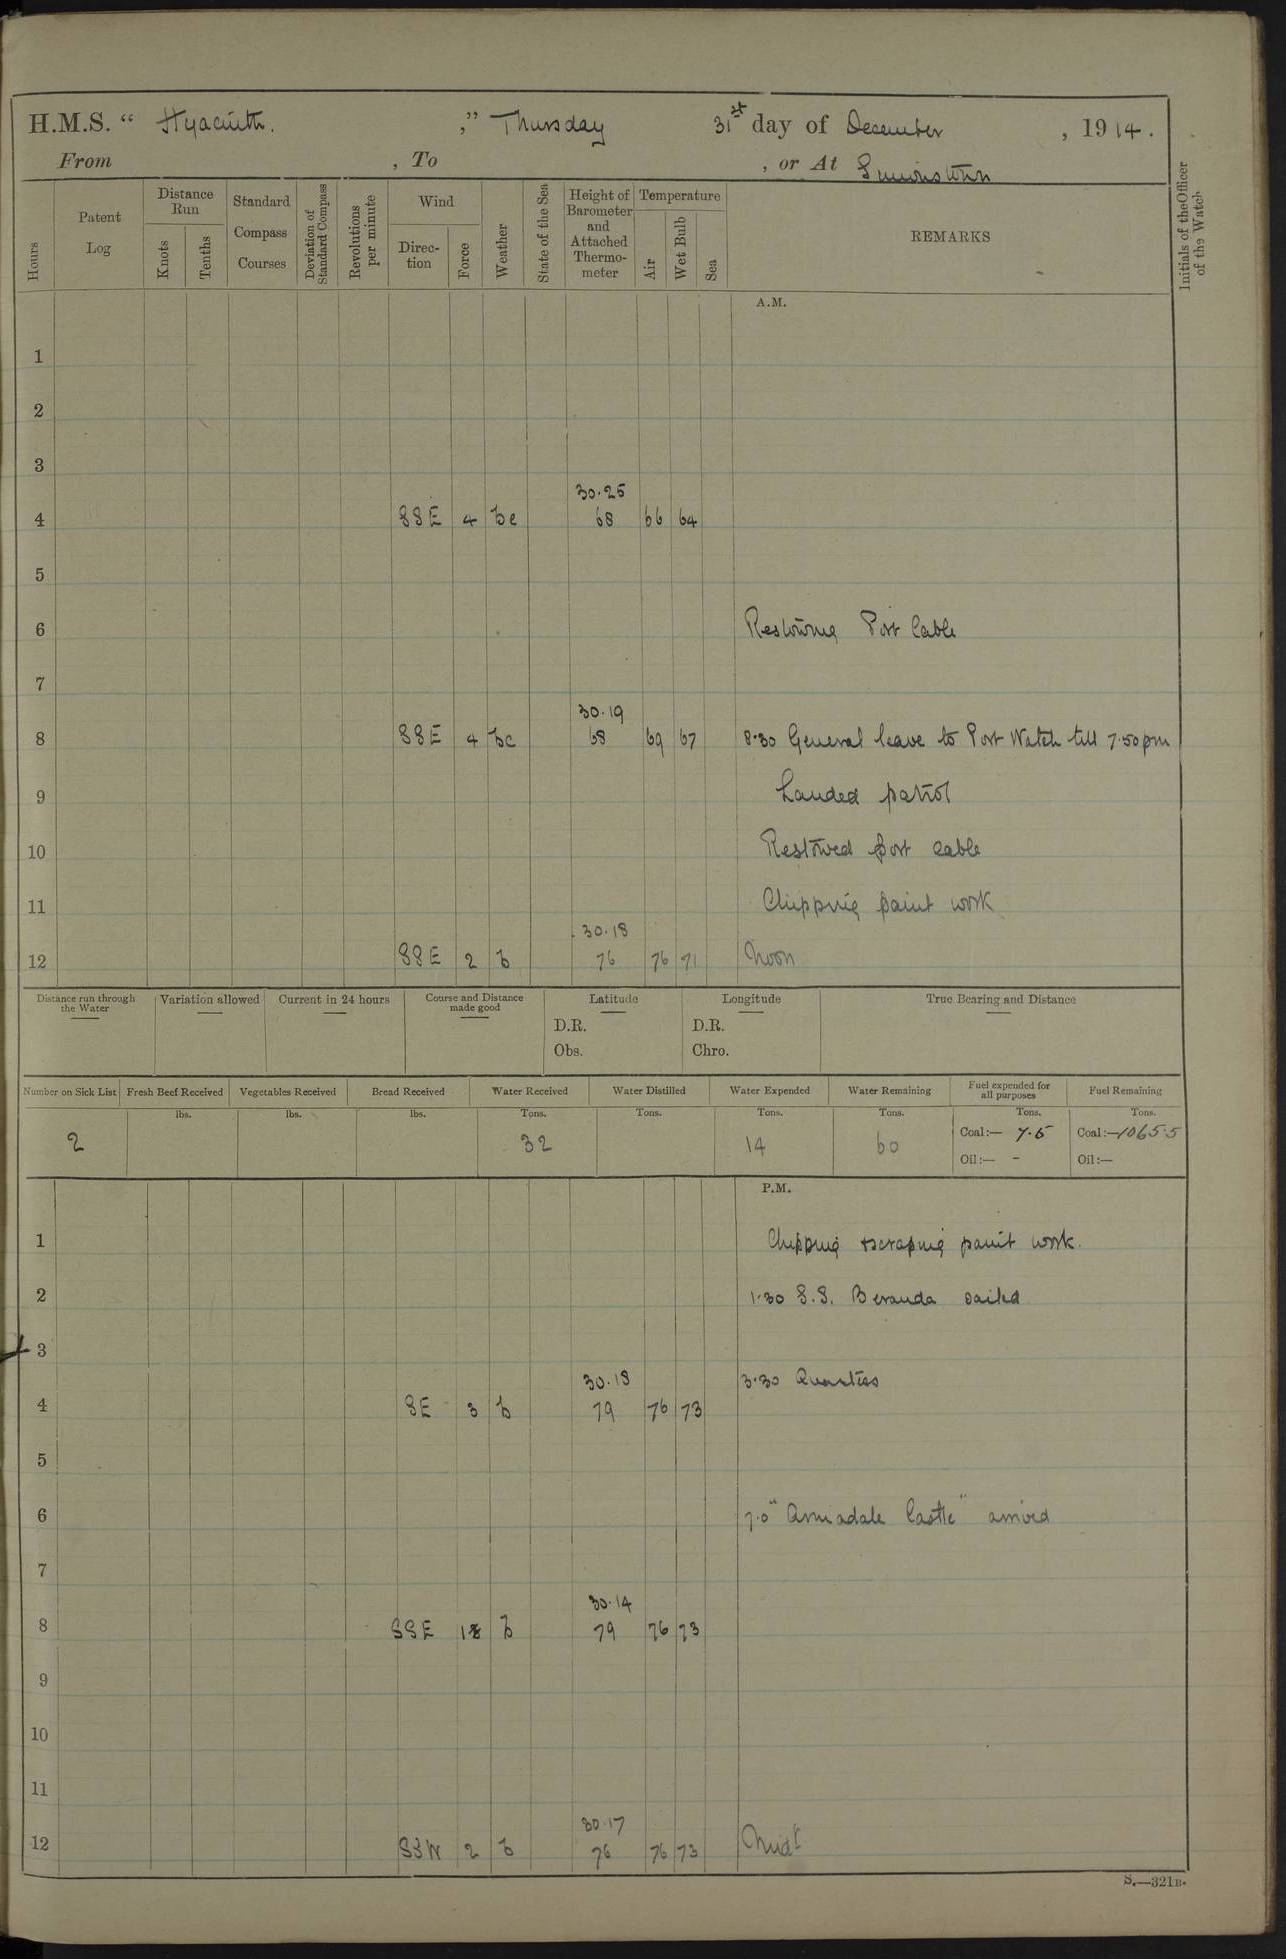 H.M.S. “ Hyacinth. ,” Thursday 31st day of December , 1914.
From , To , or At Simonstown
Hours
Patent Log
Distance Run
Knots
Tenths
Standard Compass Courses
Deviation of Standard Compass
Revolutions per minute
Wind
Direc-tion
Force
Weather
State of the Sea
Height of Barometer and Attached Thermo-meter
Temperature
Air
Wet Bulb
Sea
REMARKS
Initials of the Officer of the Watch
A.M.
1
2
3
30.25
4 SSE 4 bc 68 66 64
5
6 Restowing Port Cable
7
30.19
8 SSE 4 bc 68 69 67 8.30 General leave to Port Watch till 7.50pm
9 Landed patrol
10 Restowed port cable
11 Chipping paint work
30.18
12 SSE 2 b 76 76 71 Noon
Distance run through the Water
Variation allowed
Current in 24 hours
Course and Distance made good
Latitude
D.R.
Obs.
Longitude
D.R.
Chro.
True Bearing and Distance
Number on Sick List Fresh Beef Received Vegetables Received Bread Received Water Received Water Distilled Water Expended Water Remaining Fuel expended for all purposes Fuel Remaining
lbs. lbs. lbs. Tons. Tons. Tons. Tons. Tons. Tons.
2 32 14 60 Coal:— 7.5 Coal:— 1065.5
Oil:— - Oil:—
P.M.
1 Chipping & scraping paint work.
2 1.30 S.S. Beranda sailed
3
30.18 3.30 Quarters
4 SE 3 b 79 76 73
5
6 7.0 "Armadale Castle" arrived
7
30.14
8 SSE 1 b 79 76 73
9
10
11
30.17
12 SSW 2 b 76 76 73 Midt
S.—321B.